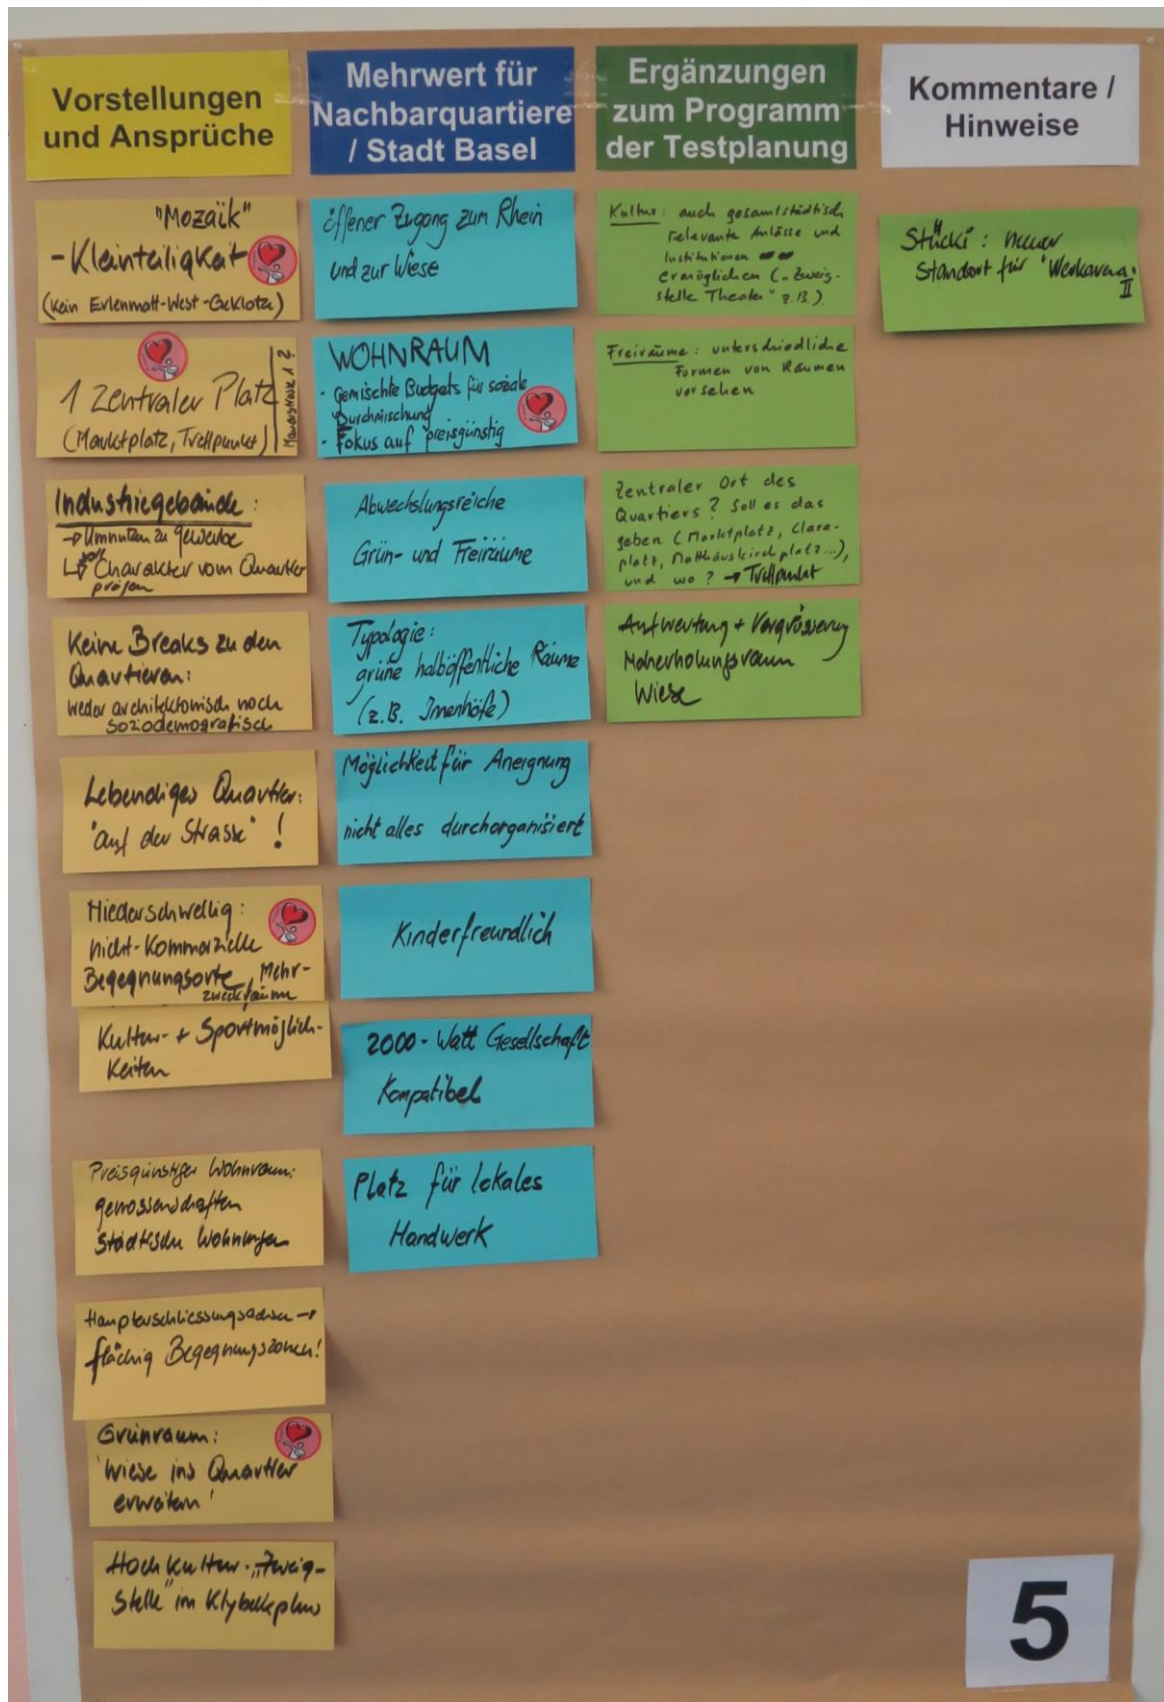 Vorstellungen
und Ansprüche
"Mozaïk"
- Kleinteiligkeit
(Kein Erlenmatt-West-Geklotze)
1 Zentraler Platz
(Marktplatz, Treffpunkt)
Mauerstrasse 1 ?
Industriegebäude:
→ Umnutzen zu Gewerbe
↳ soll Charakter vom Quartier
prägen
Keine Breaks zu den
Quartieren:
weder architektonisch noch
soziodemografisch
Lebendiges Quartier:
"auf der Strasse" !
Niederschwellig:
nicht-Kommerzielle
Begegnungsorte, Mehr-
zweckräume
Kultur- + Sportmöglich-
keiten
Preisgünstiger Wohnraum:
genossenschaften
Städtische Wohnungen
Haupterschliessungsachsen →
flächig Begegnungszonen!
Grünraum:
'Wiese ins Quartier
erweitern'
Hochkultur-„Zweig-
stelle" im Klybeckplus
Mehrwert für
Nachbarquartiere
/ Stadt Basel
öffener Zugang zum Rhein
und zur Wiese
WOHNRAUM
- Gemischte Budgets für soziale
Durchmischung
- Fokus auf preisgünstig
Abwechslungsreiche
Grün- und Freiräume
Typologie:
grüne halböffentliche Räume
(z.B. Innenhöfe)
Möglichkeit für Aneignung
nicht alles durchorganisiert
Kinderfreundlich
2000-Watt Gesellschaft
Kompatibel
Platz für lokales
Handwerk
Ergänzungen
zum Programm
der Testplanung
Kultur: auch gesamtstädtisch
relevante Anlässe und
Institutionen
ermöglichen („Zweig-
stelle Theater" z.B.).
Freiräume: unterschiedliche
Formen von Räumen
vorsehen
Zentraler Ort des
Quartiers? Soll es das
geben (Marktplatz, Clara-
platz, Matthäuskirchplatz...),
und wo? → Treffpunkt
Aufwertung + Vergrösserung
Naherholungsraum
Wiese
Kommentare /
Hinweise
Stücki: neuer
Standort für "Werkarena"
II
5